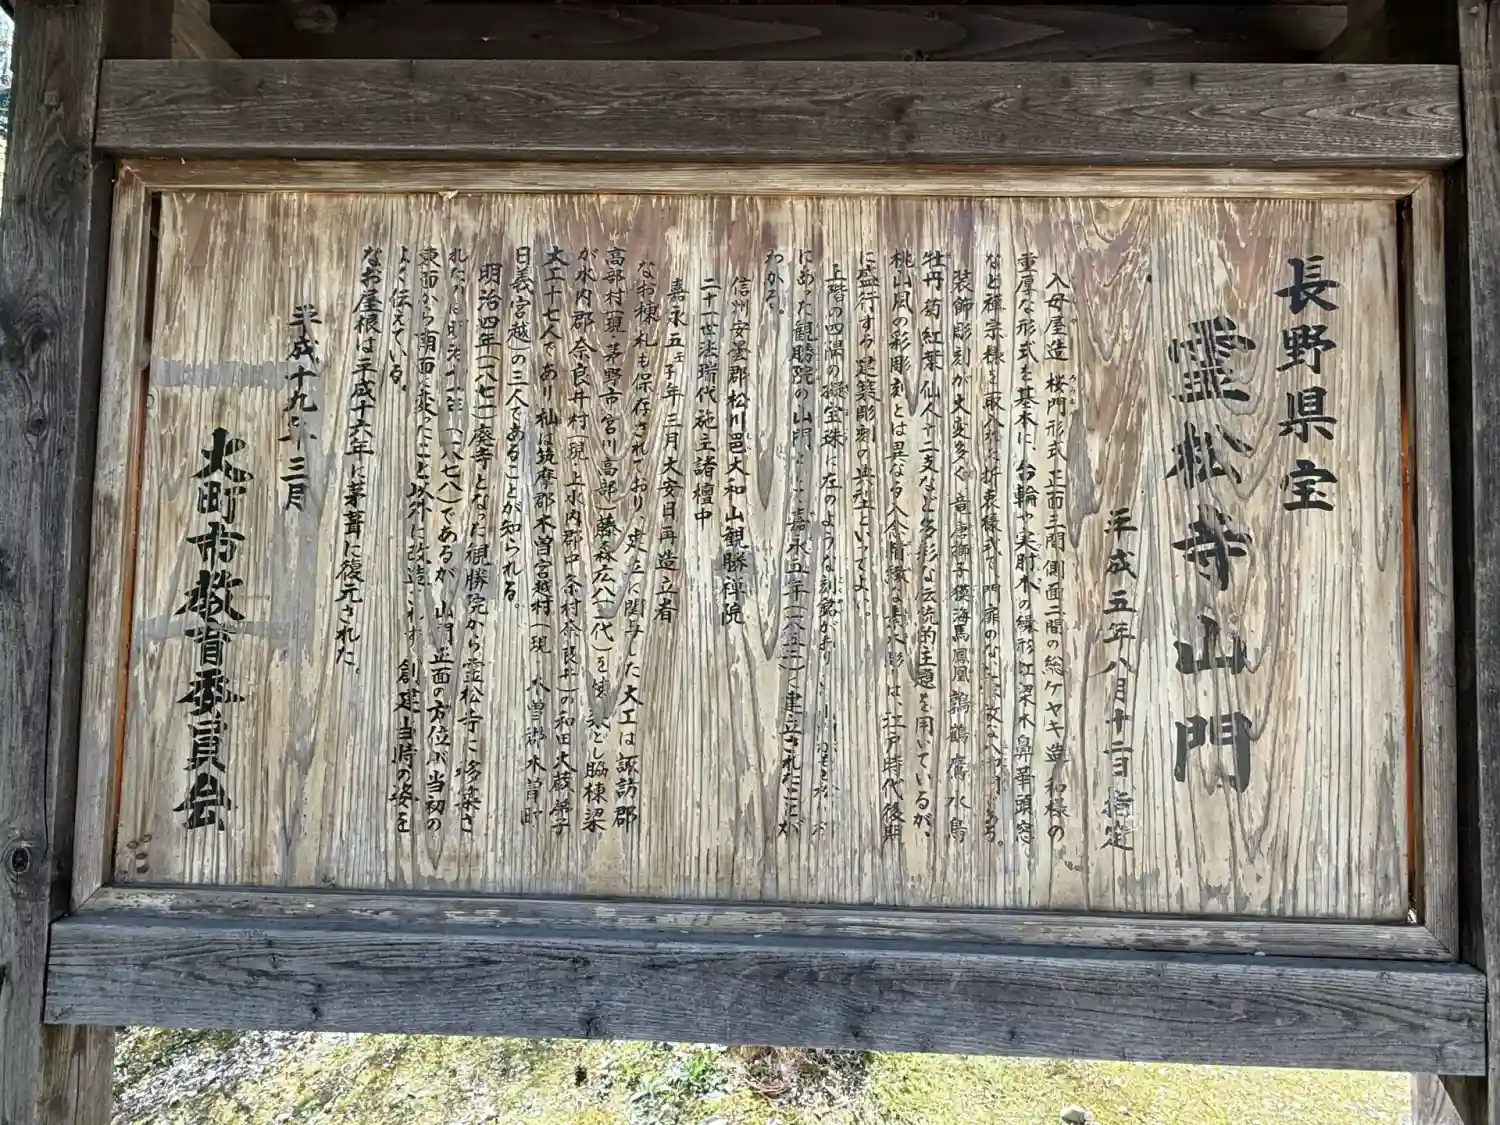 長野県宝
霊松寺山門
平成五年八月十二日指定
入母屋造 桜門形式 正面三間 側面二間の総ケヤキ造 和様の
重厚な形式を基本に、台輪や実肘木の繰形 虹梁 木鼻 華頭窓
など禅宗様を取入れた折衷様式で 門扉のない
装飾彫刻が大変多く 竜 唐獅子 獏 海馬 鳳凰 鶴 鷹 水鳥
牡丹 菊 紅葉 仙人 十二支など多彩な伝統的主題を用いているが、
桃山風の彩彫刻とは異なる入念 繊細な素木彫りは、江戸時代後期
に盛行する建築彫刻の典型といってよい。
上階の四隅の擬宝珠に左のような刻銘があり、
にあった観勝院の山門として嘉永五年(一八五二)に建立されたことが
わかる。
信州安曇郡松川邑大和山観勝禅院
二十一世法瑞代施主諸檀中
嘉永五壬子年三月大安日再造立者
なお棟札も保存されており 建立に関与した大工は諏訪郡
高部村(現・茅野市宮川高部)藤森広八(二代)を棟梁とし脇棟梁
が水内郡奈良井村(現 上水内郡中条村奈良井)の和田大蔵 弟子
大工十七人であり 杣は筑摩郡木曽宮越村(現・木曽郡木曽町
日義宮越)の三人であることが知られる。
明治四年(一八七一)廃寺となった観勝院から霊松寺に移築さ
れたのは明治十一年(一八七八)であるが 山門正面の方位が当初の
東面から南面に変ったこと以外に改造されず 創建当時の姿を
よく伝えている。
なお屋根は平成十六年に茅葺に復元された。
平成十九年三月
大町市教育委員会